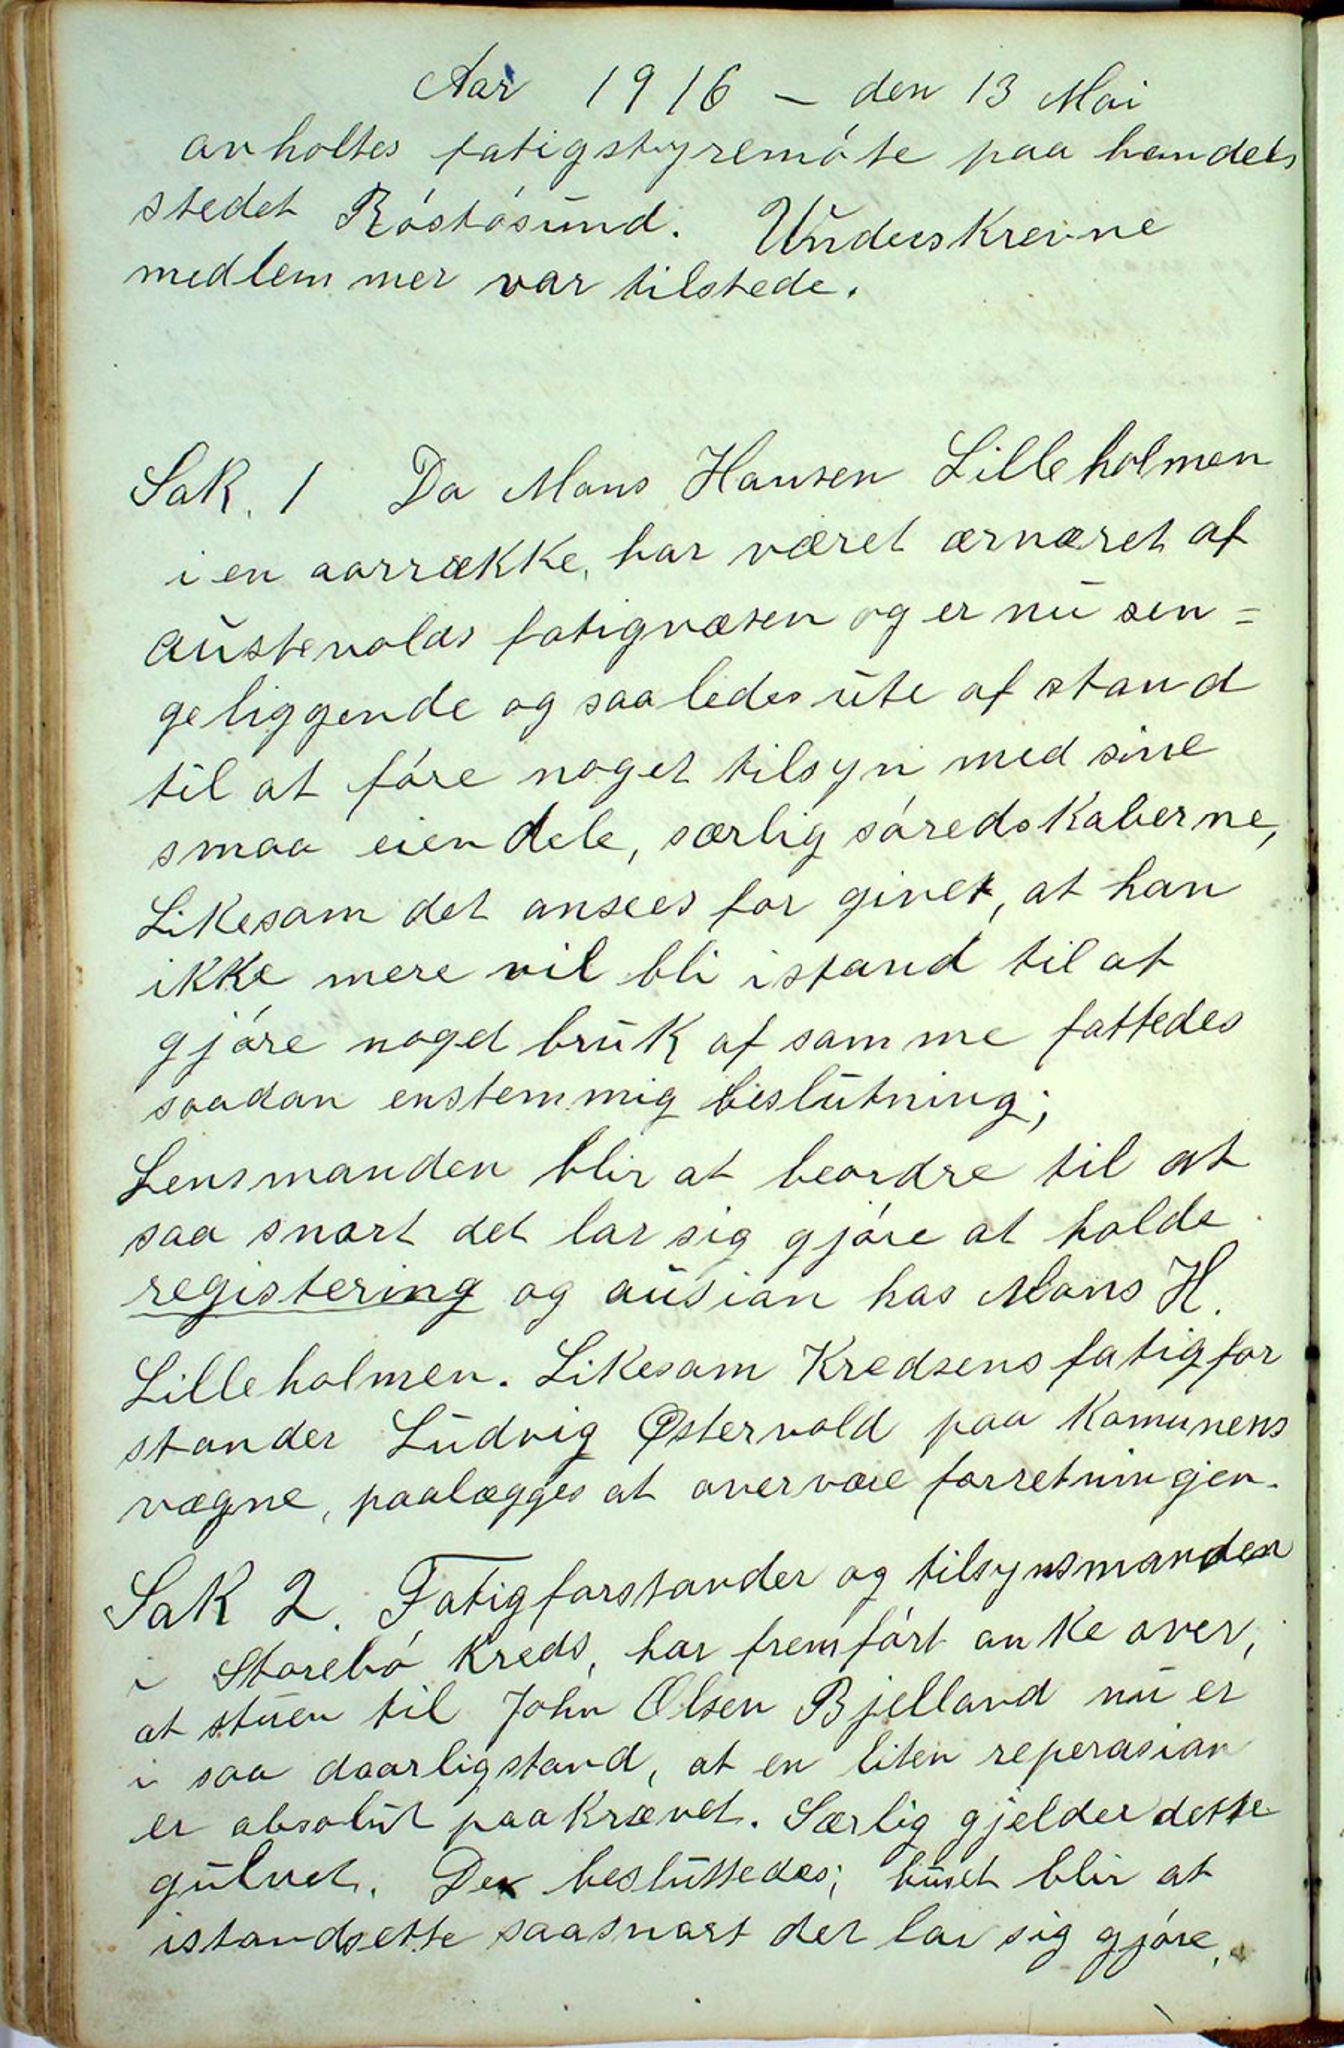 Aar 1916 – den 13 Mai
avholtes fatigstyremóte paa handels
stedet Róstósund. Underskrevne
medlemmer var tilstede.
Sak. 1 Da Mons Hansen Lilleholmen
i en aarrække, har været ærnæret af
Austevolds fatigvæsen og er nu sen=
geliggende og saaledes ute af stand
til at fóre noget tilsyn med sine
smaa eiendele, særlig sóredskaberne,
Likesom det ansees for givet, at han
ikke mere vil bli istand til at
gjóre noget bruk af samme fattedes
saadan enstemmig beslutning;
Lensmanden blir at beordre til at
saa snart det lar sig gjóre at holde
registering og ausion hos Mons H.
Lilleholmen. Likesom Kredsens fatigfor
stander Ludvig Østervold paa Komunens
vægne, paalægges at overvære forretningen.
Sak 2. Fatigforstander og tilsynsmanden
i Storebó kreds, har fremfórt anke over,
at stuen til John Olsen Bjelland nu er
i saa daarligstand, at en liten reperasion
er absolut paakrævet. Særlig gjelder dette
gulvet. Det besluttedes; huset blir at
istandsette saasnart det lar sig gjóre.